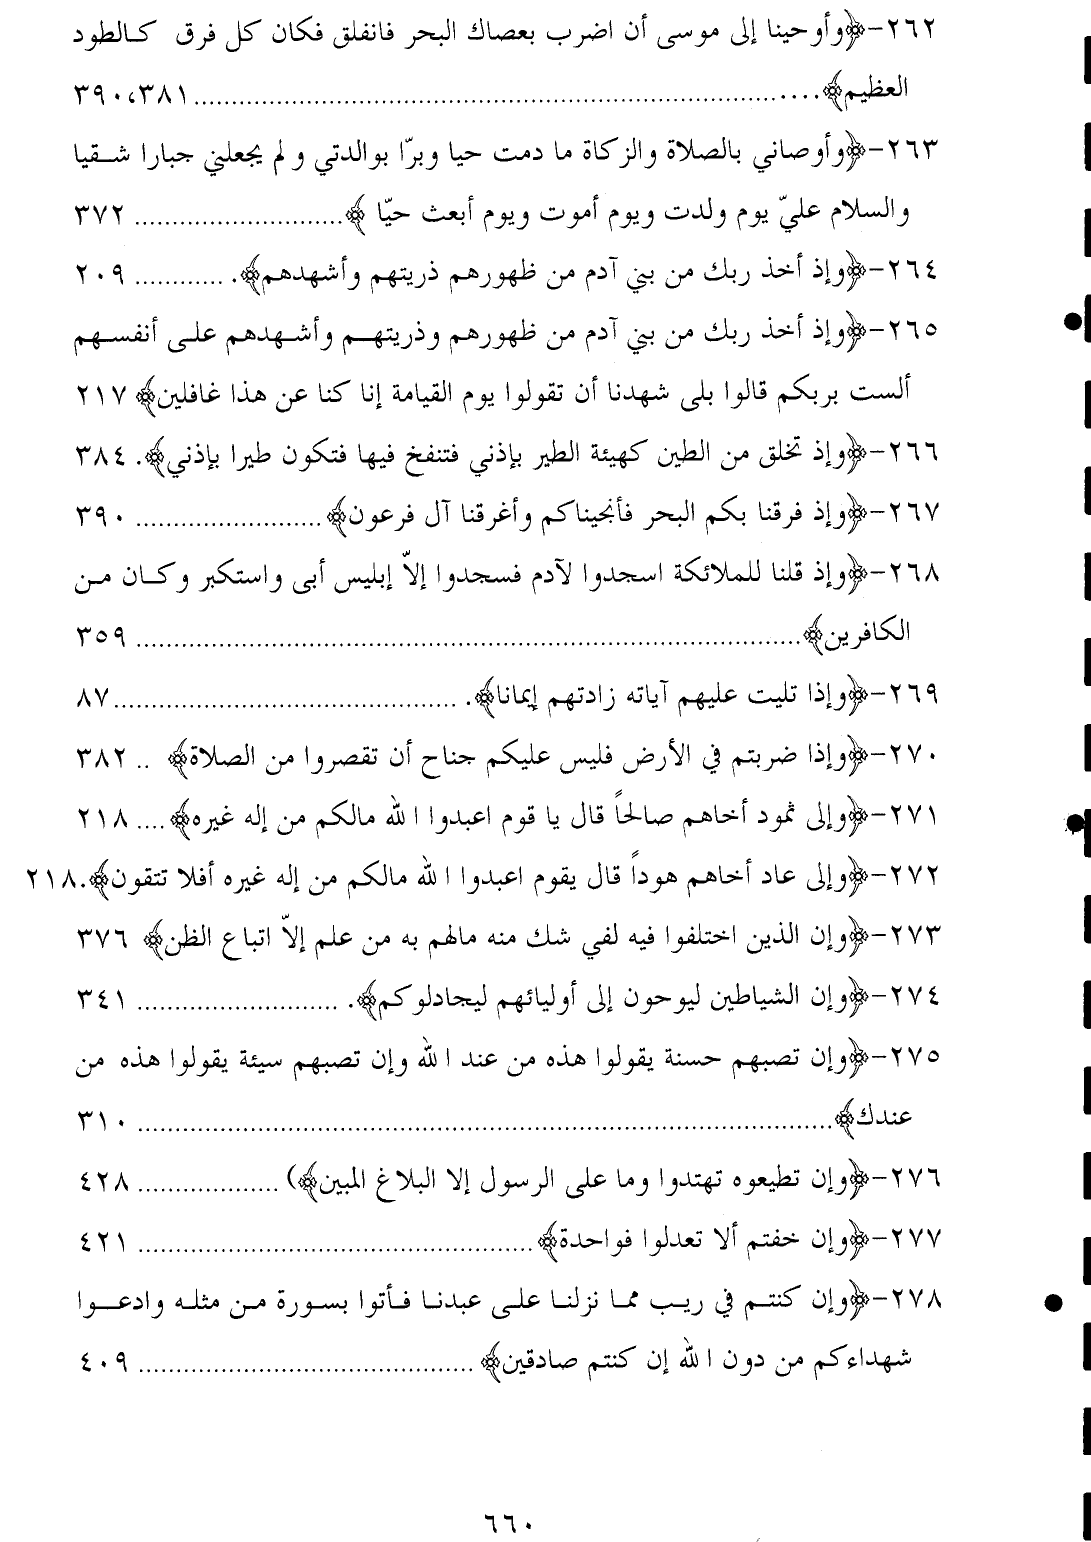 ٢٦٢-﴿وأوحينا إلى موسى أن اضرب بعصاك البحر فانفلق فكان كل فرق كالطود
العظيم﴾.... ٣٩٠،٣٨١
٢٦٣-﴿وأوصاني بالصلاة والزكاة ما دمت حيا وبرّا بوالدتي و لم يجعلني جبارا شقيا
والسلام عليّ يوم ولدت ويوم أموت ويوم أبعث حيّا ﴾ .... ٣٧٢
٢٦٤-﴿وإذ أخذ ربك من بني آدم من ظهورهم ذريتهم وأشهدهم﴾. .... ٢٠٩
٢٦٥-﴿وإذ أخذ ربك من بني آدم من ظهورهم وذريتهم وأشهدهم على أنفسهم
ألست بربكم قالوا بلى شهدنا أن تقولوا يوم القيامة إنا كنا عن هذا غافلين﴾ ٢١٧
٢٦٦-﴿وإذ تخلق من الطين كهيئة الطير بإذني فتنفخ فيها فتكون طيرا بإذني﴾. ٣٨٤
٢٦٧-﴿وإذ فرقنا بكم البحر فأنجيناكم وأغرقنا آل فرعون﴾ .... ٣٩٠
٢٦٨-﴿وإذ قلنا للملائكة اسجدوا لآدم فسجدوا إلاّ إبليس أبى واستكبر وكان من
الكافرين﴾ .... ٣٥٩
٢٦٩-﴿وإذا تليت عليهم آياته زادتهم إيمانا﴾. .... ٨٧
٢٧٠-﴿وإذا ضربتم في الأرض فليس عليكم جناح أن تقصروا من الصلاة﴾ .. ٣٨٢
٢٧١-﴿وإلى ثمود أخاهم صالحاً قال يا قوم اعبدوا الله مالكم من إله غيره﴾ .... ٢١٨
٢٧٢-﴿وإلى عاد أخاهم هوداً قال يقوم اعبدوا الله مالكم من إله غيره أفلا تتقون﴾.٢١٨
٢٧٣-﴿وإن الذين اختلفوا فيه لفي شك منه مالهم به من علم إلاّ اتباع الظن﴾ ٣٧٦
٢٧٤-﴿وإن الشياطين ليوحون إلى أوليائهم ليجادلوكم﴾. .... ٣٤١
٢٧٥-﴿وإن تصبهم حسنة يقولوا هذه من عند الله وإن تصبهم سيئة يقولوا هذه من
عندك﴾ .... ٣١٠
٢٧٦-﴿وإن تطيعوه تهتدوا وما على الرسول إلا البلاغ المبين﴾) .... ٤٢٨
٢٧٧-﴿وإن خفتم ألا تعدلوا فواحدة﴾ .... ٤٢١
٢٧٨-﴿وإن كنتم في ريب مما نزلنا على عبدنا فأتوا بسورة من مثله وادعوا
شهداءكم من دون الله إن كنتم صادقين﴾ .... ٤٠٩
٦٦٠